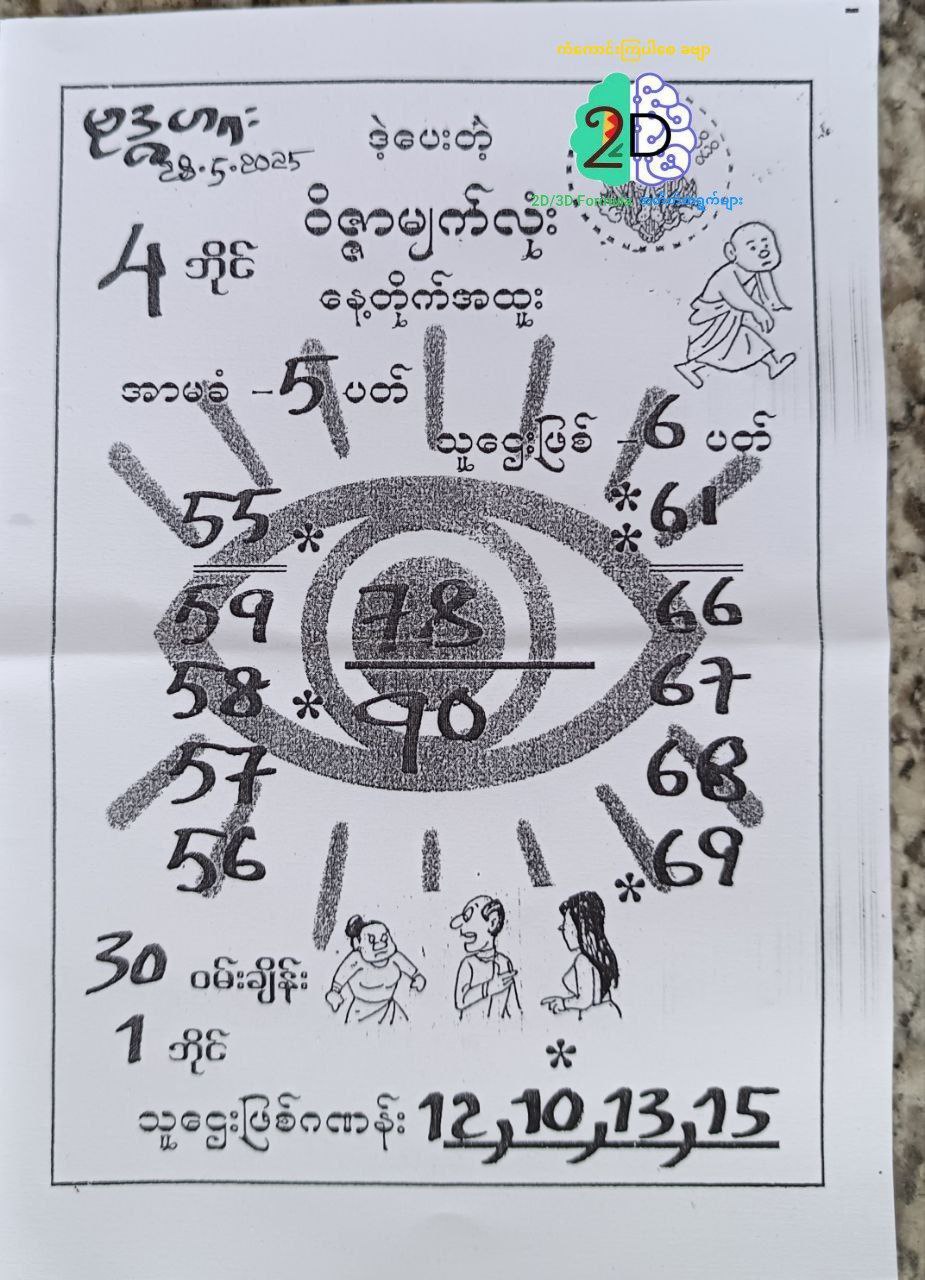 ကံကောင်းကြပါစေ ခဗျာ
2D
2D/3D Formula
ဗုဒ္ဓဟူး
28.5.2025
ဒဲ့ပေးတဲ့
ဝိဇ္ဇာမျက်လုံး
4 ဘိုင်
နေ့တိုက်အထူး
အာမခံ -5 ပတ်
သူဌေးဖြစ် -6 ပတ်
55 * * 61
*
59 78 66
58 * 90 67
57 68
56 69
*
30 ဝမ်းချိန်း
1 ဘိုင်
*
သူဌေးဖြစ်ဂဏန်း 12,10,13,15